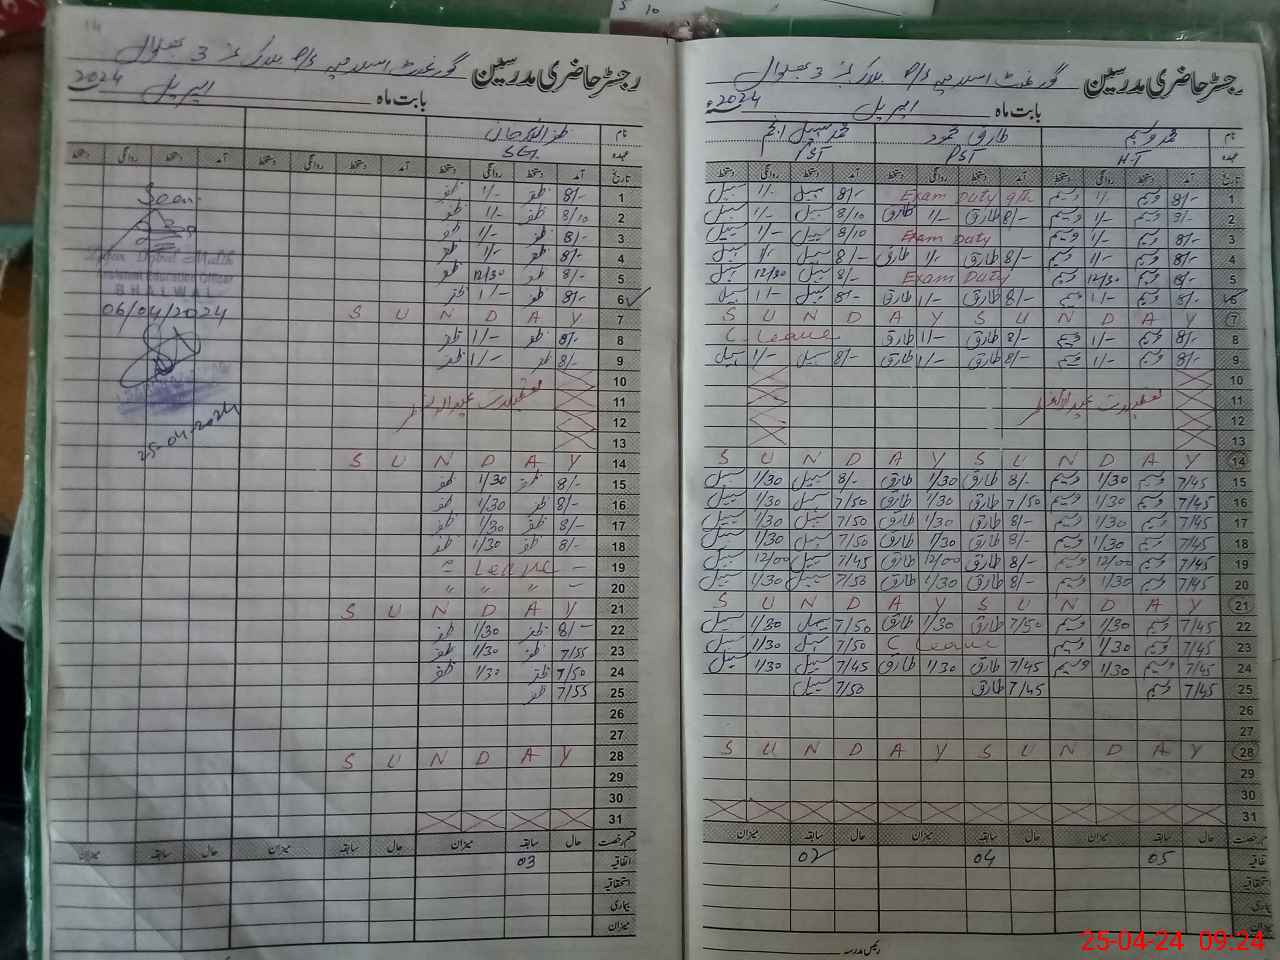 رجسٹر حاضری مدرسین گورنمنٹ اسلامیہ P/S بلاک نمبر 3 بھلوال
بابت ماہ اپریل 2024ء
نام محمد وسیم طارق محمود محمد سہیل انجم
عہدہ H.T PST PST
تاریخ آمد دستخط روانگی دستخط آمد دستخط روانگی دستخط آمد دستخط روانگی دستخط
1 8/- وسیم 1/- وسیم Exam Duty 9th 8/- سہیل 1/- سہیل
2 8/- وسیم 1/- وسیم 8/- طارق 1/- طارق 8/10 سہیل 1/- سہیل
3 8/- وسیم 1/- وسیم Exam Duty 8/10 سہیل 1/- سہیل
4 8/- وسیم 1/- وسیم 8/- طارق 1/- طارق 8/- سہیل 1/- سہیل
5 8/- وسیم 12/30 وسیم Exam Duty 8/- سہیل 12/30 سہیل
6 8/- وسیم 1/- وسیم 8/- طارق 1/- طارق 8/- سہیل 1/- سہیل
7 S U N D A Y S U N D A Y
8 8/- وسیم 1/- وسیم 8/- طارق 1/- طارق C Leave
9 8/- وسیم 1/- وسیم 8/- طارق 1/- طارق 8/- سہیل 1/- سہیل
10
11 تعطیلات عید الفطر
12
13
14 S U N D A Y S U N D A Y
15 7/45 وسیم 1/30 وسیم 8/- طارق 1/30 طارق 8/- سہیل 1/30 سہیل
16 7/45 وسیم 1/30 وسیم 7/50 طارق 1/30 طارق 7/50 سہیل 1/30 سہیل
17 7/45 وسیم 1/30 وسیم 8/- طارق 1/30 طارق 7/50 سہیل 1/30 سہیل
18 7/45 وسیم 1/30 وسیم 8/- طارق 1/30 طارق 7/50 سہیل 1/30 سہیل
19 7/45 وسیم 12/00 وسیم 8/- طارق 12/00 طارق 7/45 سہیل 12/00 سہیل
20 7/45 وسیم 1/30 وسیم 8/- طارق 1/30 طارق 7/50 سہیل 1/30 سہیل
21 S U N D A Y S U N D A Y
22 7/45 وسیم 1/30 وسیم 7/50 طارق 1/30 طارق 7/50 سہیل 1/30 سہیل
23 7/45 وسیم 1/30 وسیم C Leave 7/50 سہیل 1/30 سہیل
24 7/45 وسیم 1/30 وسیم 7/45 طارق 1/30 طارق 7/45 سہیل 1/30 سہیل
25 7/45 وسیم 7/45 طارق 7/50 سہیل
26
27
28 S U N D A Y S U N D A Y
29
30
31
قسم رخصت حال سابقہ میزان حال سابقہ میزان حال سابقہ میزان
اتفاقیہ 05 04 02
استحقاقیہ
بیماری
میزان
رئیس مدرسہ
رجسٹر حاضری مدرسین گورنمنٹ اسلامیہ P/S بلاک نمبر 3 بھلوال
بابت ماہ اپریل 2024
نام
عہدہ
تاریخ آمد دستخط روانگی دستخط آمد دستخط روانگی دستخط آمد دستخط روانگی دستخط
1 8/- ظفر 1/- ظفر
2 8/10 ظفر 1/- ظفر
3 8/- ظفر 1/- ظفر
4 8/- ظفر 1/- ظفر
5 8/- ظفر 12/30 ظفر
6 8/- ظفر 1/- ظفر
7 S U N D A Y
8 8/- ظفر 1/- ظفر
9 8/- ظفر 1/- ظفر
10
11 تعطیلات عید الفطر
12
13
14 S U N D A Y
15 8/- ظفر 1/30 ظفر
16 8/- ظفر 1/30 ظفر
17 8/- ظفر 1/30 ظفر
18 8/- ظفر 1/30 ظفر
19 Leave
20 " " "
21 S U N D A Y
22 8/- ظفر 1/30 ظفر
23 7/55 ظفر 1/30 ظفر
24 7/50 ظفر 1/30 ظفر
25 7/55 ظفر
26
27
28 S U N D A Y
29
30
31
قسم رخصت حال سابقہ میزان حال سابقہ میزان حال سابقہ میزان
اتفاقیہ 03
استحقاقیہ
بیماری
میزان
رئیس مدرسہ
Seen
Education Officer
BHALWAL
06/04/2024
25-04-2024
14
5 10
25-04-24 09:24